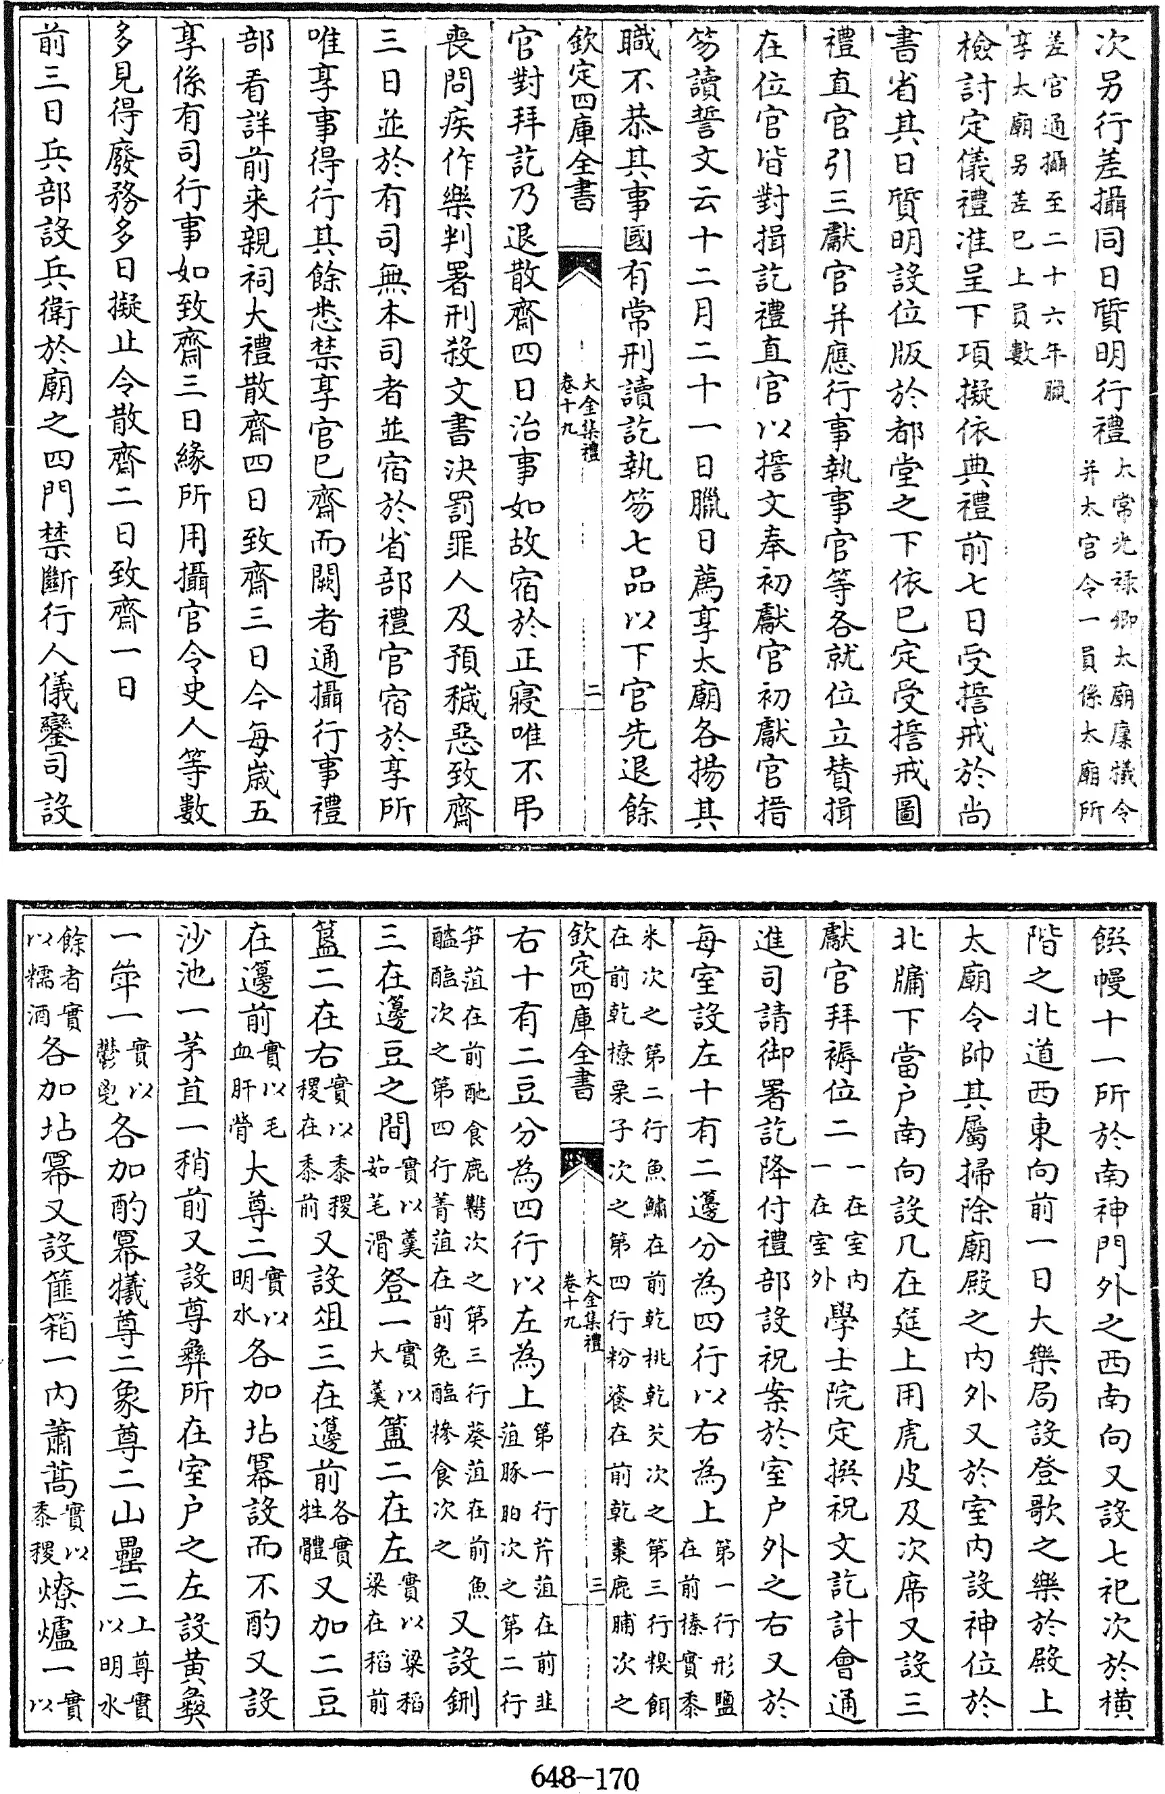 次另行差攝同日質明行禮太常光祿卿太廟廩犧令并太官令一員係太廟所
差官通攝至二十六年職享太廟另差已上員數
檢討定儀禮准呈下項擬依典禮前七日受誓戒於尚
書省其日質明設位版於都堂之下依已定受誓戒圖
禮直官引三獻官并應行事執事官等各就位立贊揖
在位官皆對揖訖禮直官以誓文奉初獻官初獻官搢
笏讀誓文云十二月二十一日臘日薦享太廟各揚其
職不恭其事國有常刑讀訖執笏七品以下官先退餘
欽定四庫全書 大金集禮卷十九 二
官對拜訖乃退散齋四日治事如故宿於正寢唯不弔
喪問疾作樂判署刑殺文書決罰罪人及預穢惡致齋
三日並於有司無本司者並宿於省部禮官宿於享所
唯享事得行其餘悉禁享官已齋而闕者通攝行事禮
部看詳前來親祠大禮散齋四日致齋三日今每歲五
享係有司行事如致齋三日緣所用攝官令史人等數
多見得廢務多日擬止令散齋二日致齋一日
前三日兵部設兵衛於廟之四門禁斷行人儀鸞司設
饌幔十一所於南神門外之西南向又設七祀次於橫
階之北道西東向前一日大樂局設登歌之樂於殿上
太廟令帥其屬掃除廟殿之內外又於室內設神位於
北牖下當户南向設几在筵上用虎皮及次席又設三
獻官拜褥位二一在室內一在室外學士院定撰祝文訖計會通
進司請御署訖降付禮部設祝案於室户外之右又於
每室設左十有二籩分為四行以右為上第一行形鹽在前榛實黍
米次之第二行魚鱐在前乾桃乾䕩次之第三行糗餌在前乾橑栗子次之第四行粉餈在前乾棗鹿脯次之
欽定四庫全書 大金集禮卷十九 三
右十有二豆分為四行以左為上第一行芹菹在前韭菹豚胉次之第二行
笋菹在前酏食鹿臡次之第三行葵菹在前魚醢醓次之第四行菁菹在前兔醢糝食次之又設鉶
三在籩豆之間實以羹茹芼滑登一實以大羹簠二在左實以梁稻梁在稻前
簋二在右實以黍稷稷在黍前又設俎三在籩前各實牲體又加二豆
在籩前實以毛血肝膋大尊二實以明水各加坫冪設而不酌又設
沙池一茅苴一稍前又設尊彝所在室户之左設黃彝
一斝一實以鬱鬯各加酌冪犧尊二象尊二山罍二上尊實以明水
餘者實以糯酒各加坫冪又設篚箱一內蕭蒿實以黍稷燎爐一實以
648-170